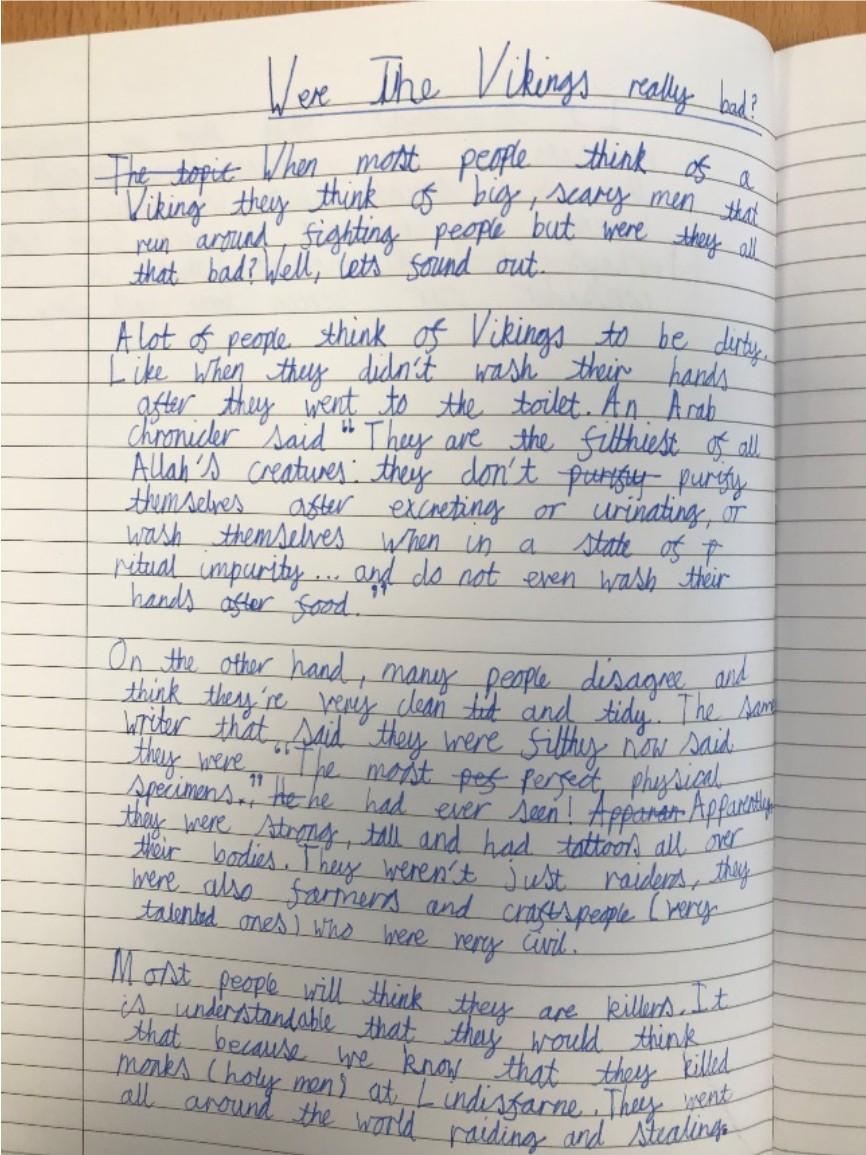 Were The Vikings really bad?
The topic When most people think of a
Viking they think of big, scary men that
run around, fighting people but were they all
that bad? Well, lets found out.
A lot of people think of Vikings to be dirty.
Like when they didn't wash their hands
after they went to the toilet. An Arab
chronicler said "They are the filthiest of all
Allah's creatures: they don't purify purify
themselves after excreting or urinating, or
wash themselves when in a state of
ritual impurity... and do not even wash their
hands after food."
On the other hand, many people disagree and
think they're very clean tid and tidy. The same
writer that said they were filthy now said
they were "The most pef perfect physical
specimens.", He he had ever seen! Apparan Apparently
they were strong, tall and had tattoos all over
their bodies. They weren't just raiders, they
were also farmers and craftspeople (very
talented ones) who were very civil.
Most people will think they are killers. It
is understandable that they would think
that because we know that they killed
monks (holy men) at Lindisfarne. They went
all around the world raiding and stealing.